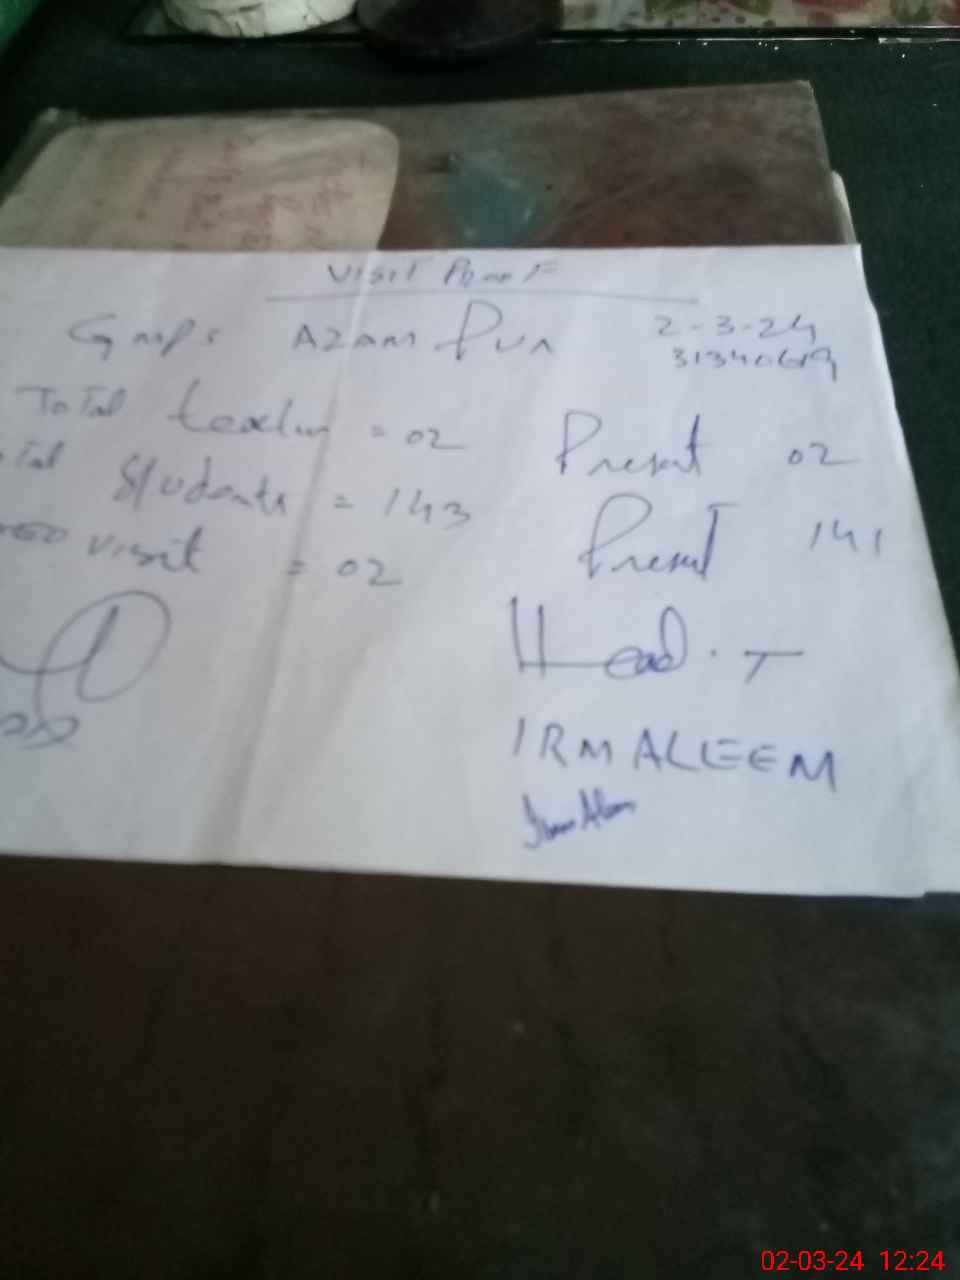 Visit Proof
GMPS AZam Pur 2-3-24
31340619
Total teacher = 02 Present 02
Students = 143 Present 141
visit = 02
Head. T
IRM ALEEM
02-03-24 12:24